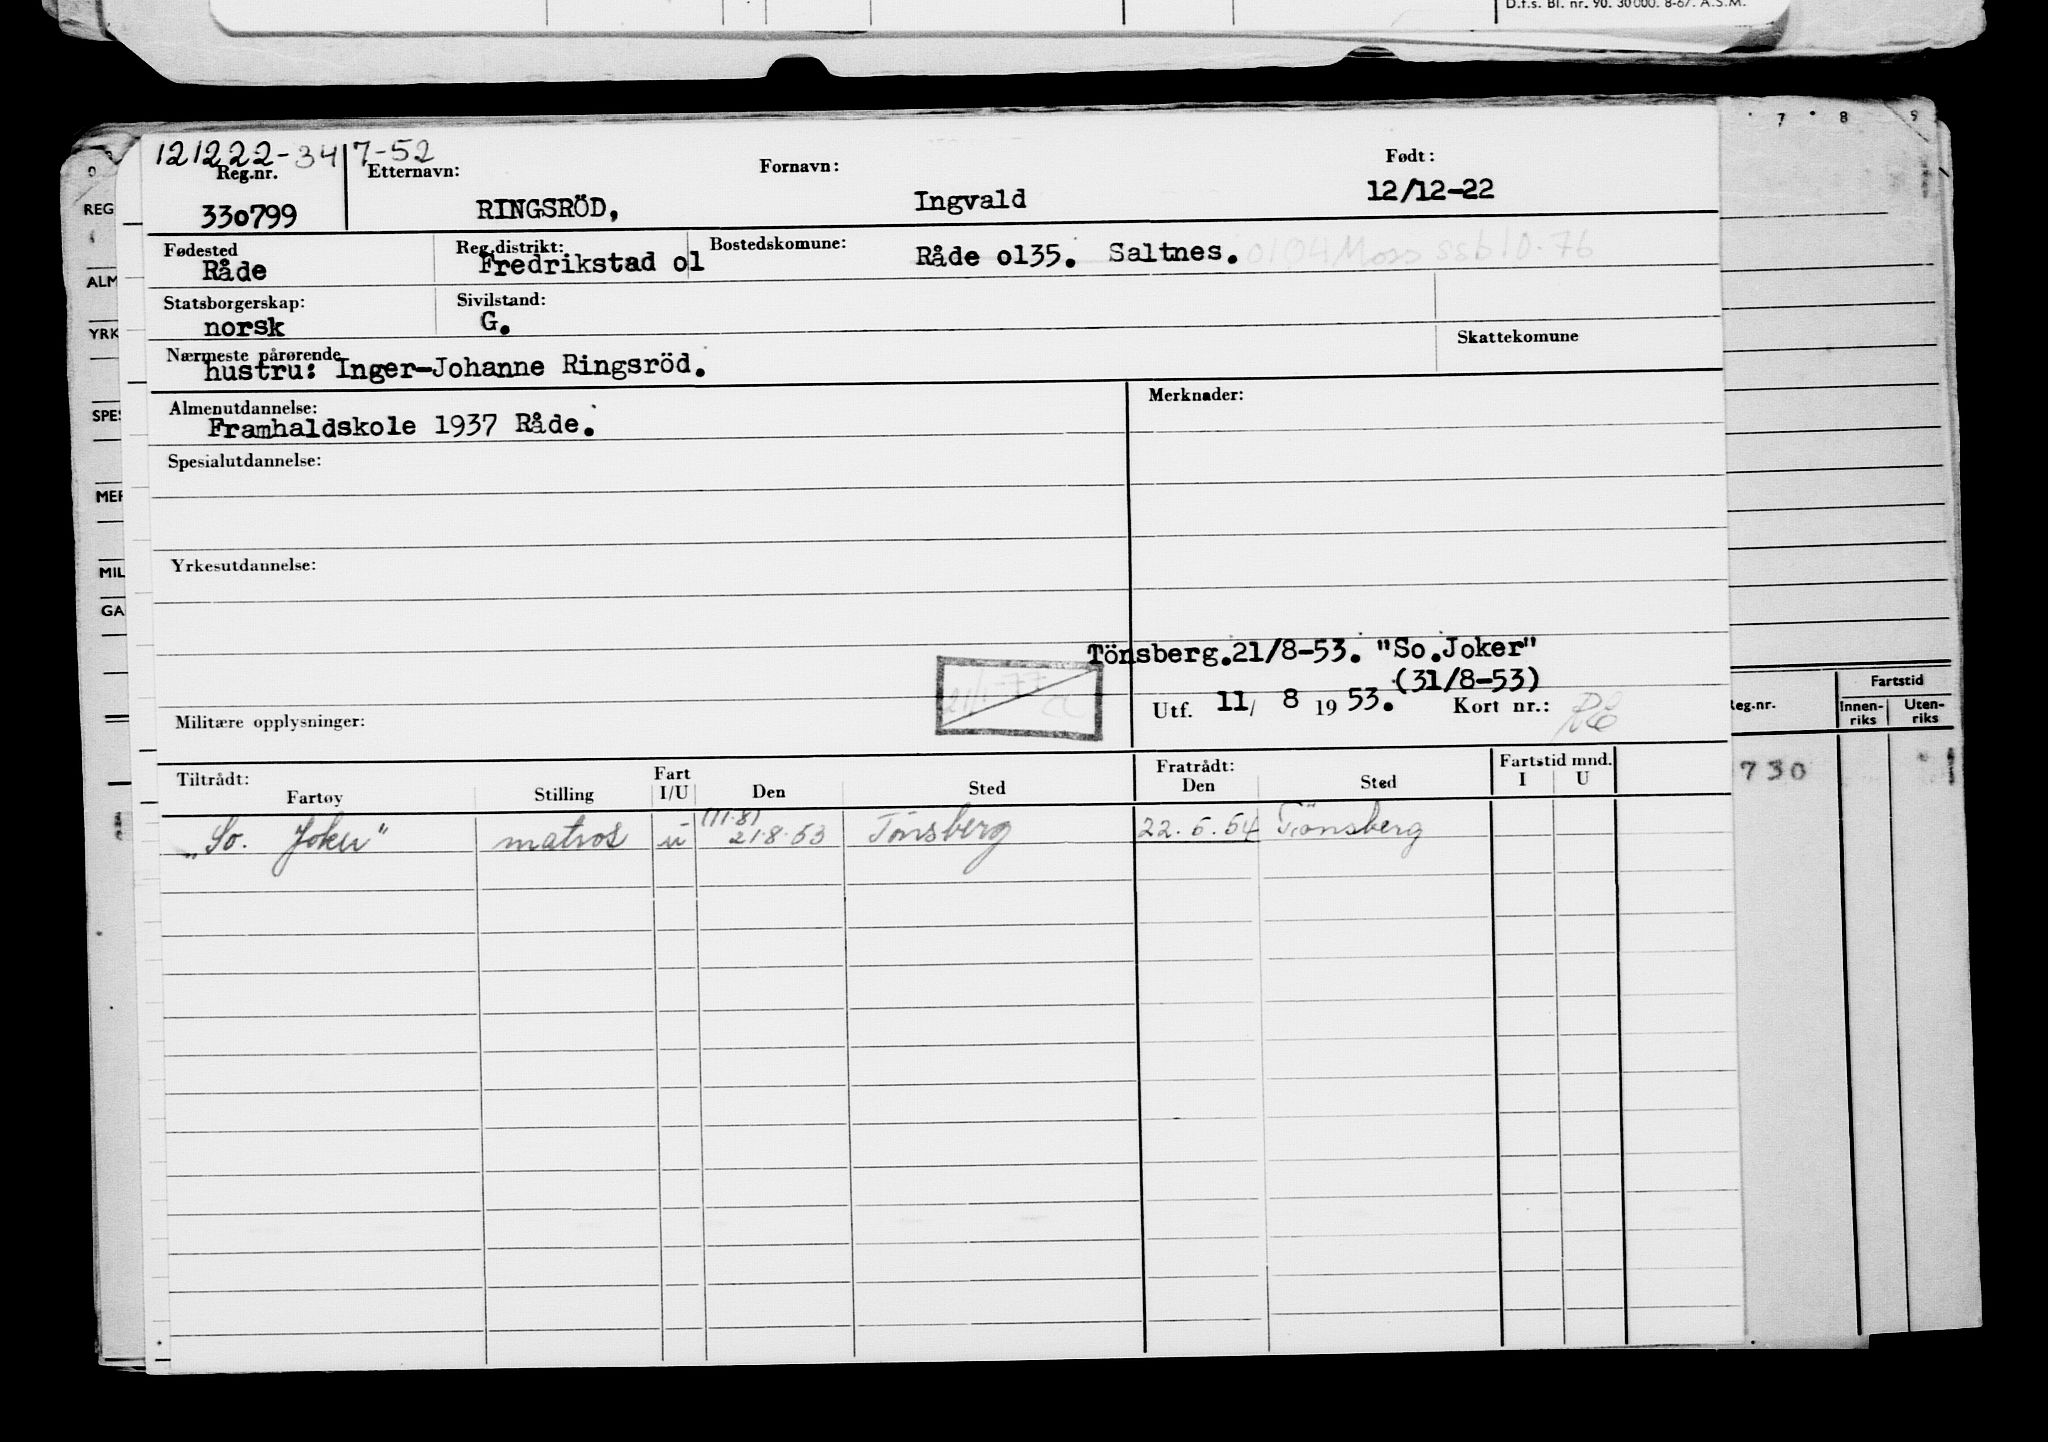 D.f.s. Bl. nr. 90. 30000. 8-67. A.S.M.
7 8 9
121222-34 7-52
Reg.nr. Etternavn: Fornavn: Født:
330799 RINGSRÖD, Ingvald 12/12-22
Fødested Reg.distrikt: Bostedskomune:
Råde Fredrikstad o1 Råde o135. Saltnes. 0104 Moss ssb 10-76
Statsborgerskap: Sivilstand:
norsk G.
Nærmeste pårørende Skattekomune
hustru: Inger-Johanne Ringsröd.
Almenutdannelse: Merknader:
Framhaldskole 1937 Råde.
Spesialutdannelse:
Yrkesutdannelse:
Tönsberg.21/8-53. "So.Joker"
(31/8-53)
Militære opplysninger: Utf. 11/ 8 1953. Kort nr.:
Tiltrådt: Fart Fratrådt: Fartstid mnd.
Fartøy Stilling I/U Den Sted Den Sted I U
(11.8)
"So. Joker" matros u 21.8.53 Tönsberg 22.5.54 Tönsberg
REG
ALM
YRK
SPES
MER
MIL
GA
Reg.nr. Fartstid
Innen-riks Uten-riks
730